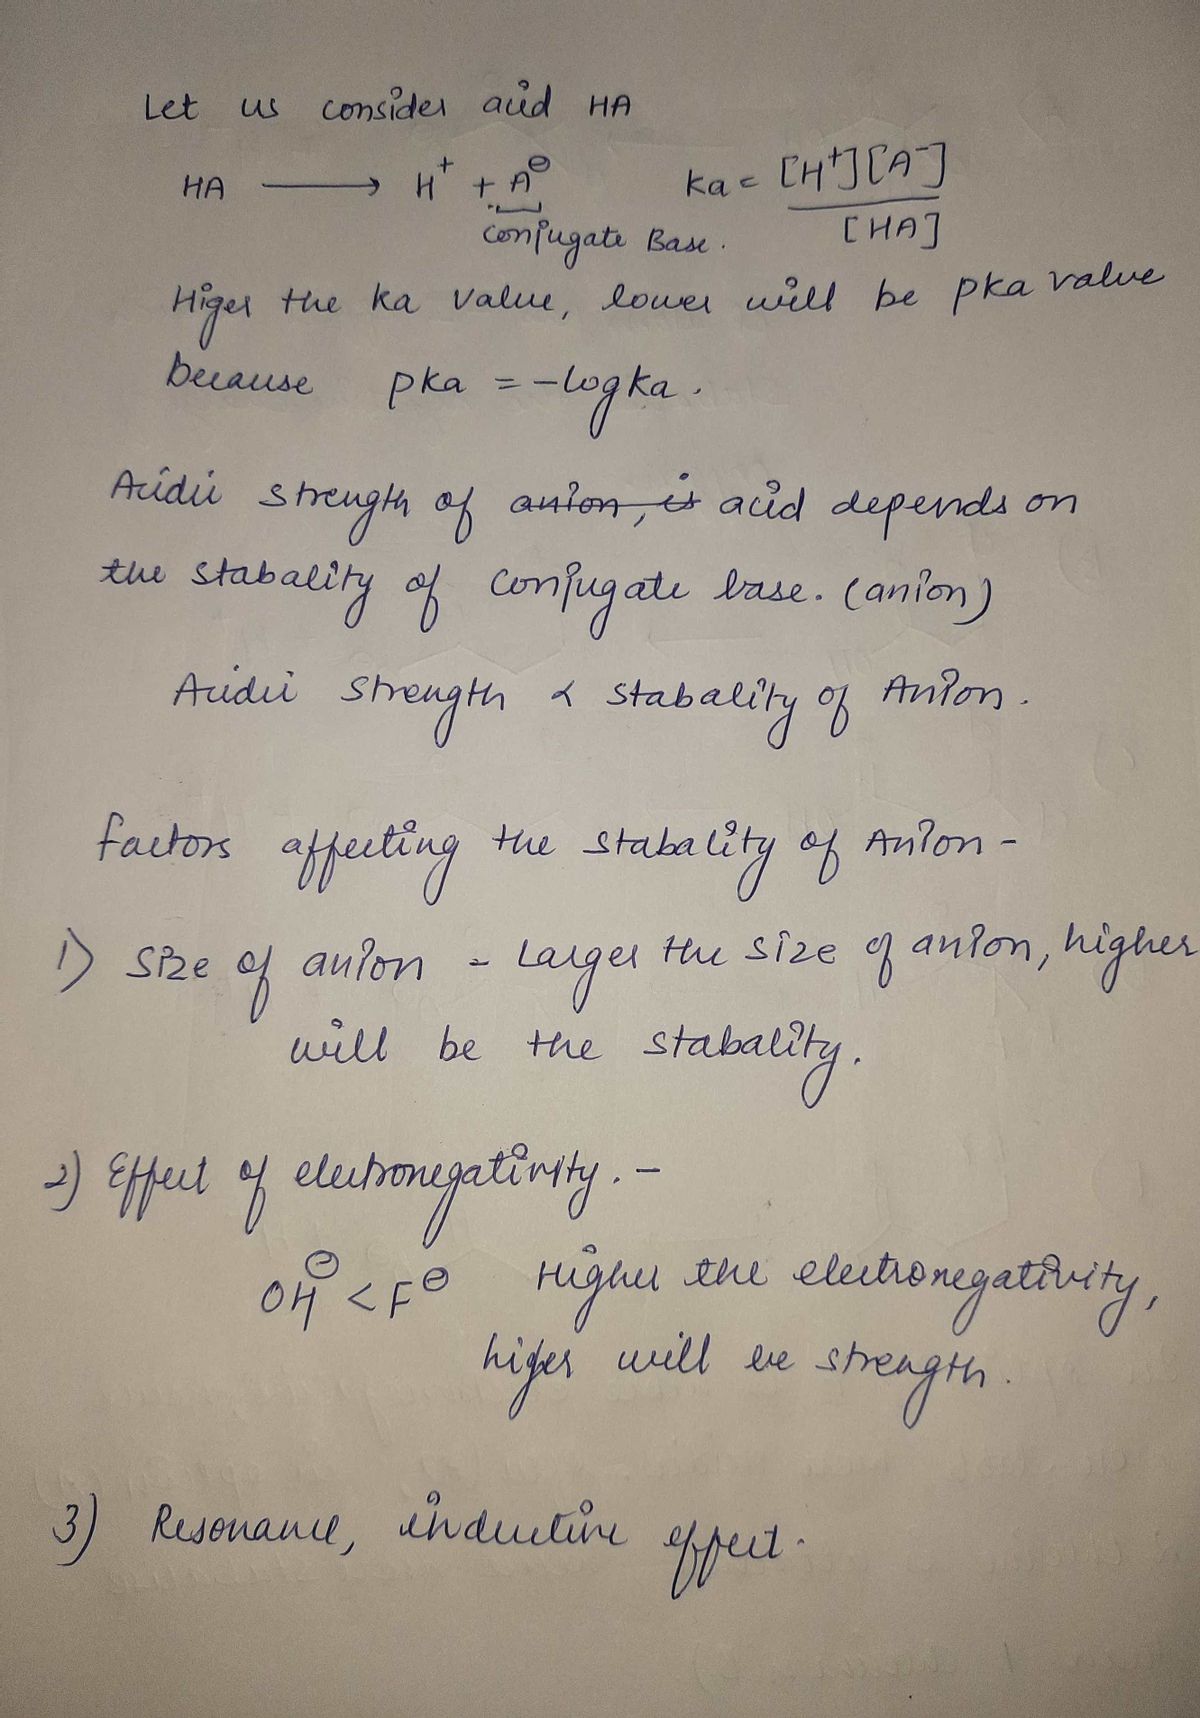 Let us consider acid HA
HA ⟶ H⁺ + A⊖ Ka = [H⁺][A⁻] / [HA]
Conjugate Base.
Higer the ka value, lower will be pka value
because pka = -logka.
Acidic strength of anion, is acid depends on
the stabality of conjugate base. (anion)
Acidic strength α stabality of Anion.
factors affecting the stabality of Anion -
1) Size of anion - Larger the size of anion, higher
will be the stabality.
2) Effect of electronegativity. -
OH⊖ < F⊖ Higher the electronegativity,
higer will be strength.
3) Resonance, inductive effect.